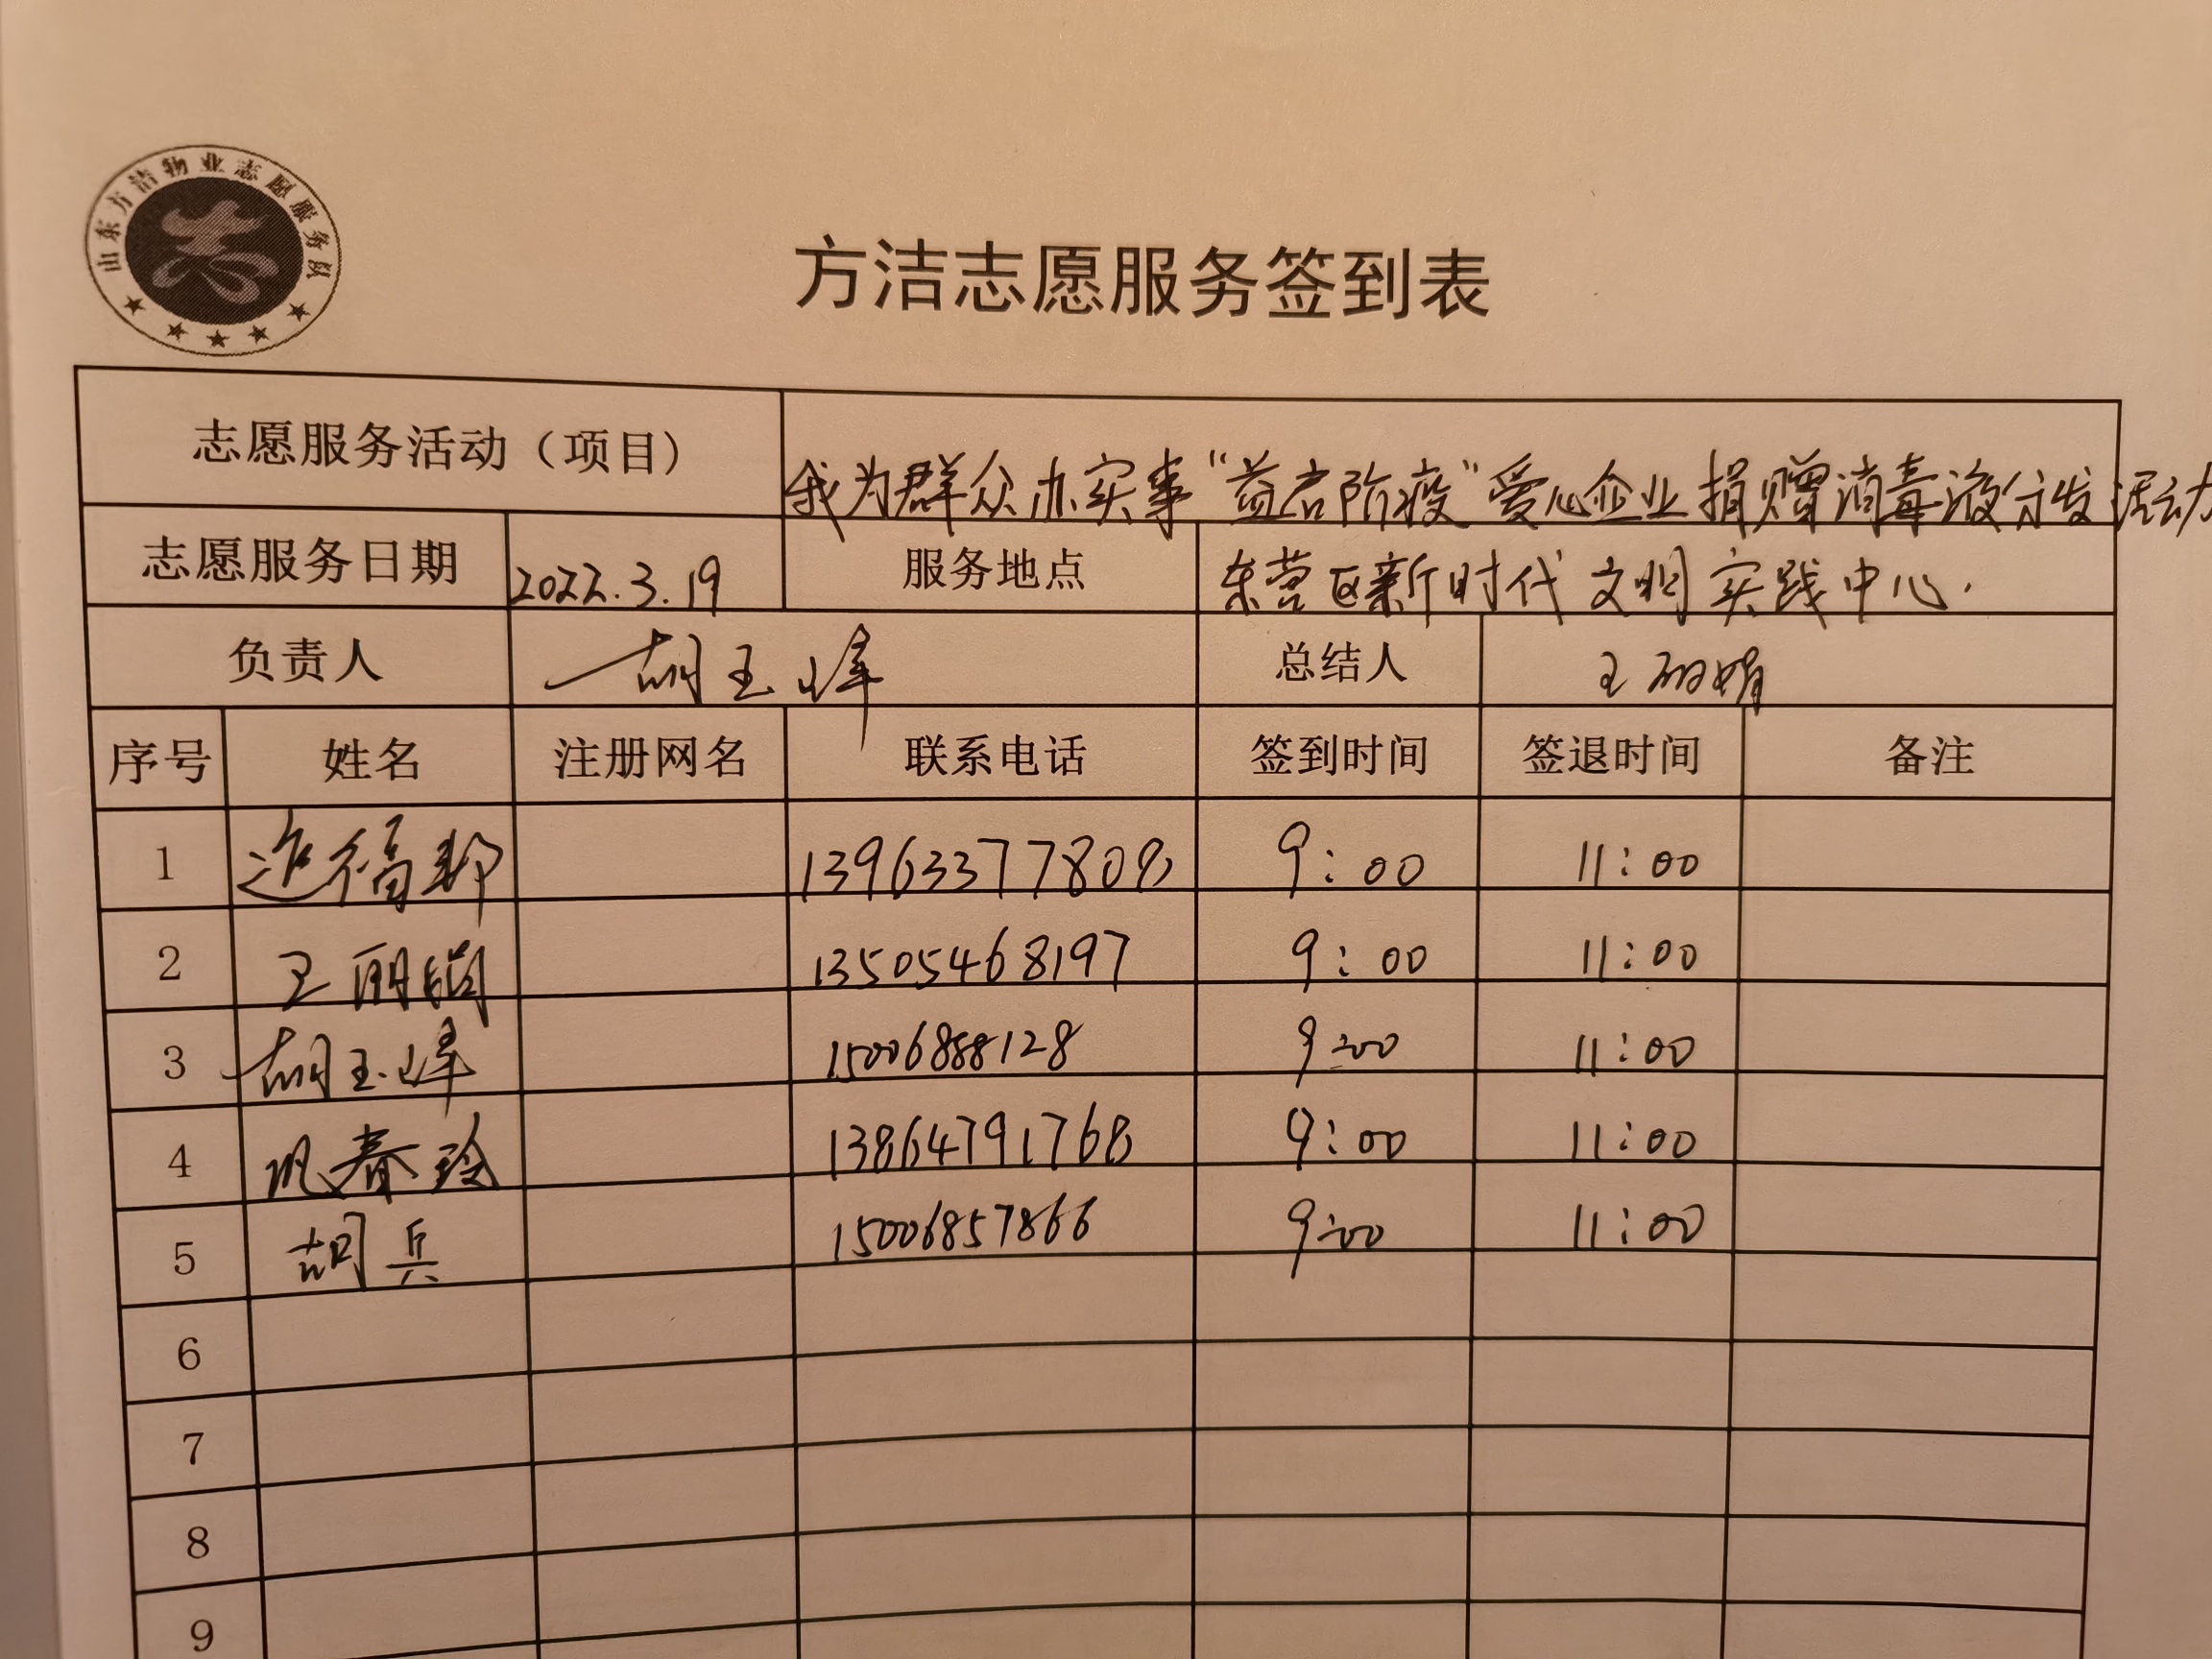 山东方洁物业志愿服务队
方洁志愿服务签到表
志愿服务活动（项目） 我为群众办实事“益启防疫”爱心企业捐赠消毒液分发活动
志愿服务日期 2022.3.19 服务地点 东营区新时代文明实践中心.
负责人 胡玉峰 总结人 王丽娟
序号 姓名 注册网名 联系电话 签到时间 签退时间 备注
1 13963377808 9:00 11:00
2 王丽娟 13505468197 9:00 11:00
3 胡玉峰 15006888128 9:00 11:00
4 巩春玲 13864791768 9:00 11:00
5 胡兵 15006857866 9:00 11:00
6
7
8
9